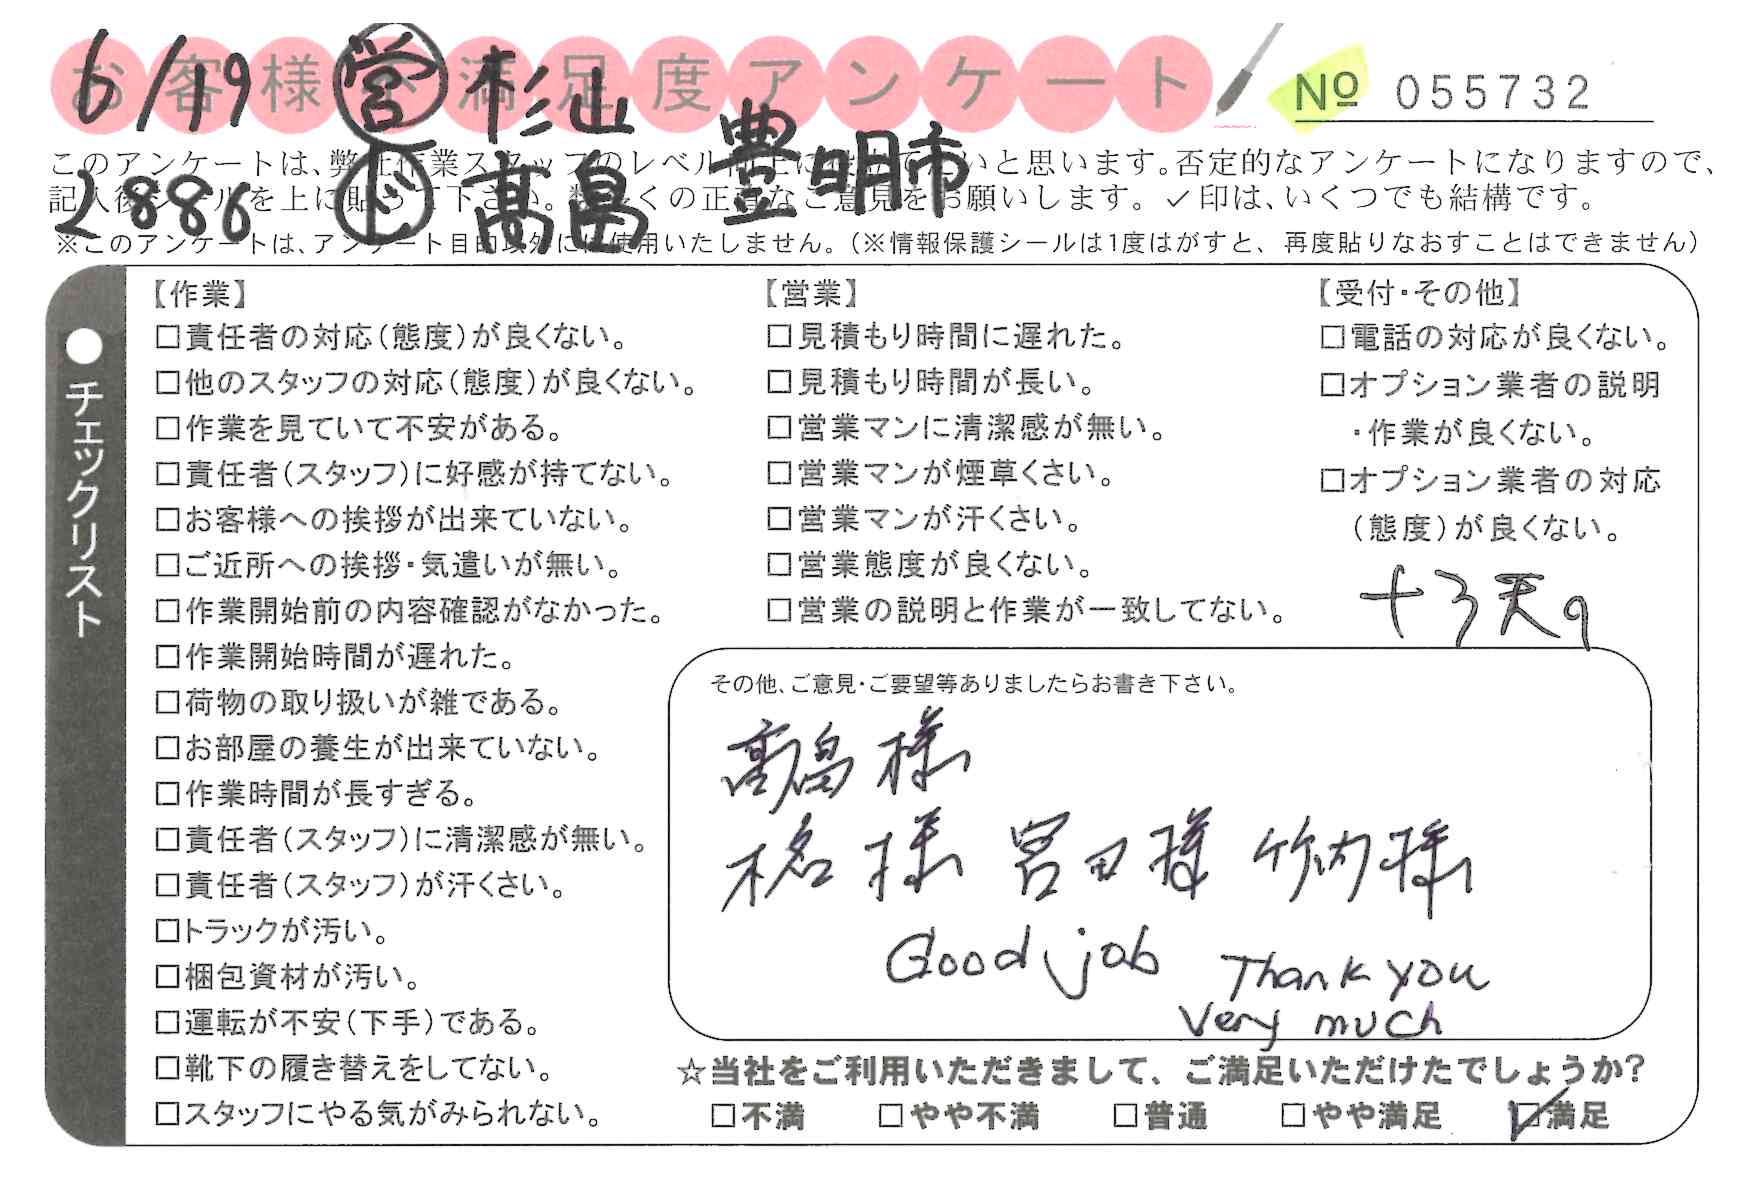 お客様の満足度アンケート
No 055732
6/19 営 杉山
2886 ド 髙畠 豊明市
このアンケートは、弊社作業スタッフのレベル向上に役立てたいと思います。否定的なアンケートになりますので、
記入後シールを上に貼って下さい。数多くの正直なご意見をお願いします。✓印は、いくつでも結構です。
※このアンケートは、アンケート目的以外には使用いたしません。（※情報保護シールは1度はがすと、再度貼りなおすことはできません）
●チェックリスト
【作業】
□責任者の対応（態度）が良くない。
□他のスタッフの対応（態度）が良くない。
□作業を見ていて不安がある。
□責任者（スタッフ）に好感が持てない。
□お客様への挨拶が出来ていない。
□ご近所への挨拶・気遣いが無い。
□作業開始前の内容確認がなかった。
□作業開始時間が遅れた。
□荷物の取り扱いが雑である。
□お部屋の養生が出来ていない。
□作業時間が長すぎる。
□責任者（スタッフ）に清潔感が無い。
□責任者（スタッフ）が汗くさい。
□トラックが汚い。
□梱包資材が汚い。
□運転が不安（下手）である。
□靴下の履き替えをしてない。
□スタッフにやる気がみられない。
【営業】
□見積もり時間に遅れた。
□見積もり時間が長い。
□営業マンに清潔感が無い。
□営業マンが煙草くさい。
□営業マンが汗くさい。
□営業態度が良くない。
□営業の説明と作業が一致してない。
【受付・その他】
□電話の対応が良くない。
□オプション業者の説明
・作業が良くない。
□オプション業者の対応
（態度）が良くない。
その他、ご意見・ご要望等ありましたらお書き下さい。
髙畠 様
様 宮田様 竹内様
Good job Thank you
Very much
☆当社をご利用いただきまして、ご満足いただけたでしょうか？
□不満 □やや不満 □普通 □やや満足 ☑満足